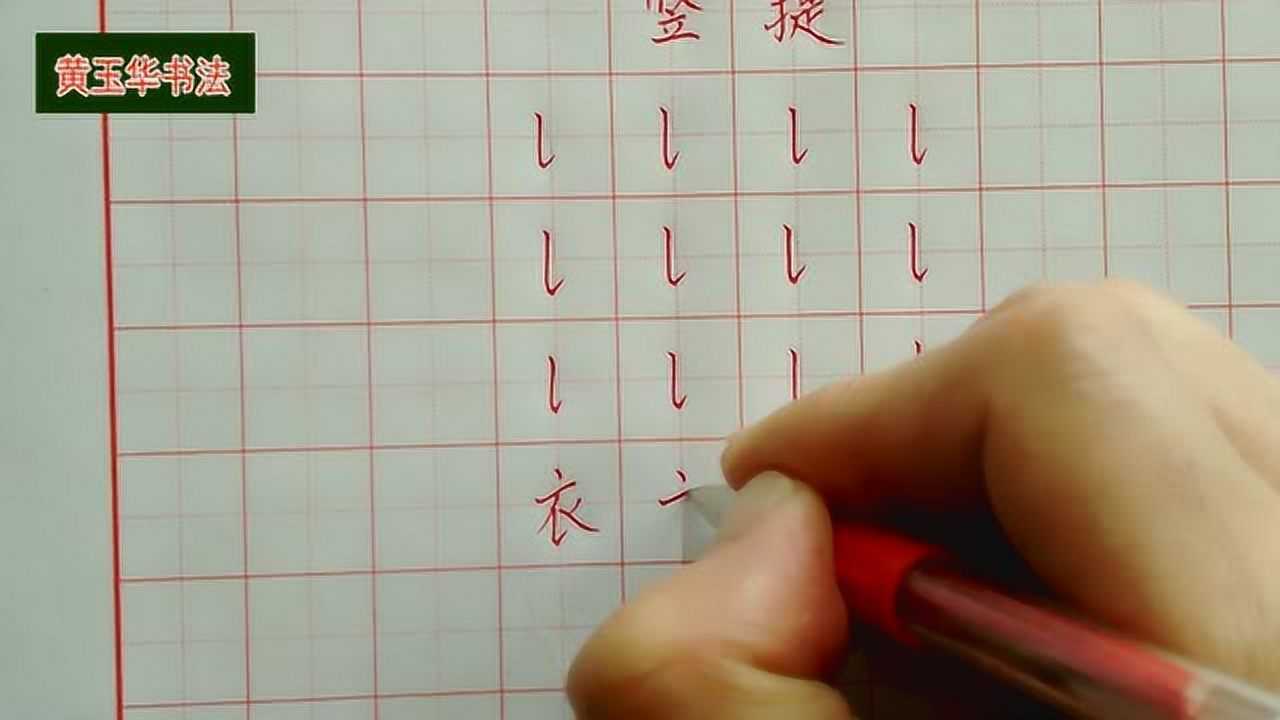 黄玉华书法
竖提
衣